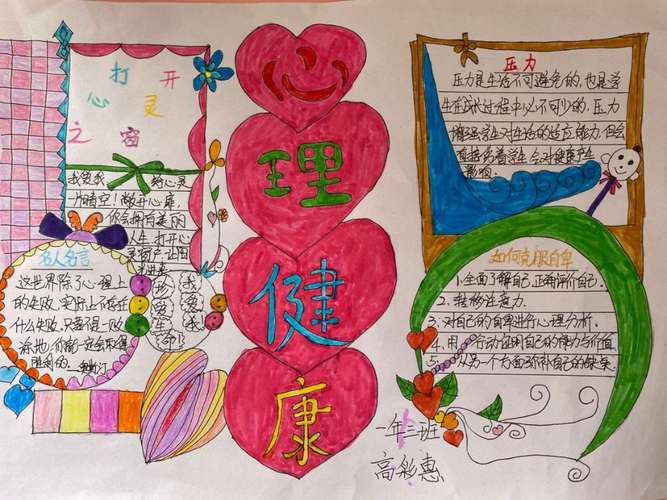 心
理
健
康
打开
心灵
之窗
我爱我
给心灵
一片晴空！敞开心扉，
你会拥有美丽
人生 打开心
名人名言
这世界除了心理上
的失败，实际上不存在
什么失败，只要不是一败
涂地，你能一定会取得
胜利的。
我
爱
生
命
压力
压力是生活不可避免的，也是学
生成长过程中必不可少的，压力
增强学生对生活的适应能力，但会
影响。
如何克服自卑
1.全面了解自己，正确评价自己。
2. 转移注意力。
3. 对自己的自卑进行心理分析。
4. 用行动证明自己的能力与价值
5. 从另一个方面弥补自己的缺点。
一年三班
高彩惠